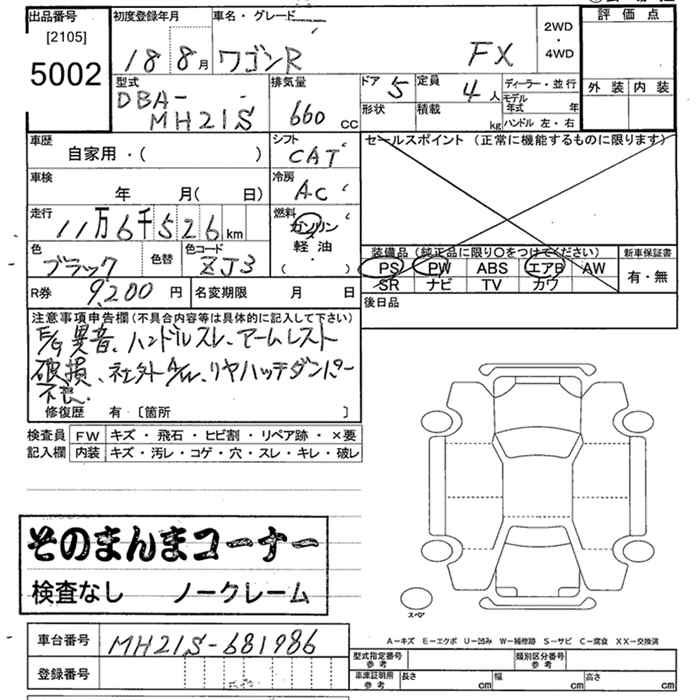 出品番号
[2105]
5002
初度登録年月
18 8月
車名・グレード
ワゴンR FX
2WD
・
4WD
評価点
外装 内装
型式
DBA-
MH21S
排気量
660 cc
ドア 5
定員 4人
形状
積載 kg
ディーラー・並行
モデル年式 年
ハンドル 左・右
車歴
自家用・( )
シフト
CAT
セールスポイント (正常に機能するものに限ります)
車検
年 月( 日)
冷房
AC
走行
11万6千526km
燃料
ガソリン
軽油
( ・ )
色
ブラック
色替
色コード
ZJ3
装備品(純正品に限り○をつけてください)
PS PW ABS エアB AW
SR ナビ TV カワ
新車保証書
有・無
R券 9,200円
名変期限 月 日
後日品
注意事項申告欄(不具合内容等は具体的に記入して下さい)
E/G異音、ハンドルスレ、アームレスト
破損、社外A/W、リヤハッチダンパー
不良.
修復歴 有・〔箇所 〕
検査員 FW キズ・飛石・ヒビ割・リペア跡・×要
記入欄 内装 キズ・汚レ・コゲ・穴・スレ・キレ・破レ
そのまんまコーナー
検査なし ノークレーム
スペア
A-キズ E-エクボ U-凹み W-補修跡 S-サビ C-腐食 XX-交換済
車台番号 MH21S-681986
登録番号
型式指定番号
参考
類別区分番号
参考
車庫証明用
参考
長さ cm 幅 cm 高さ cm